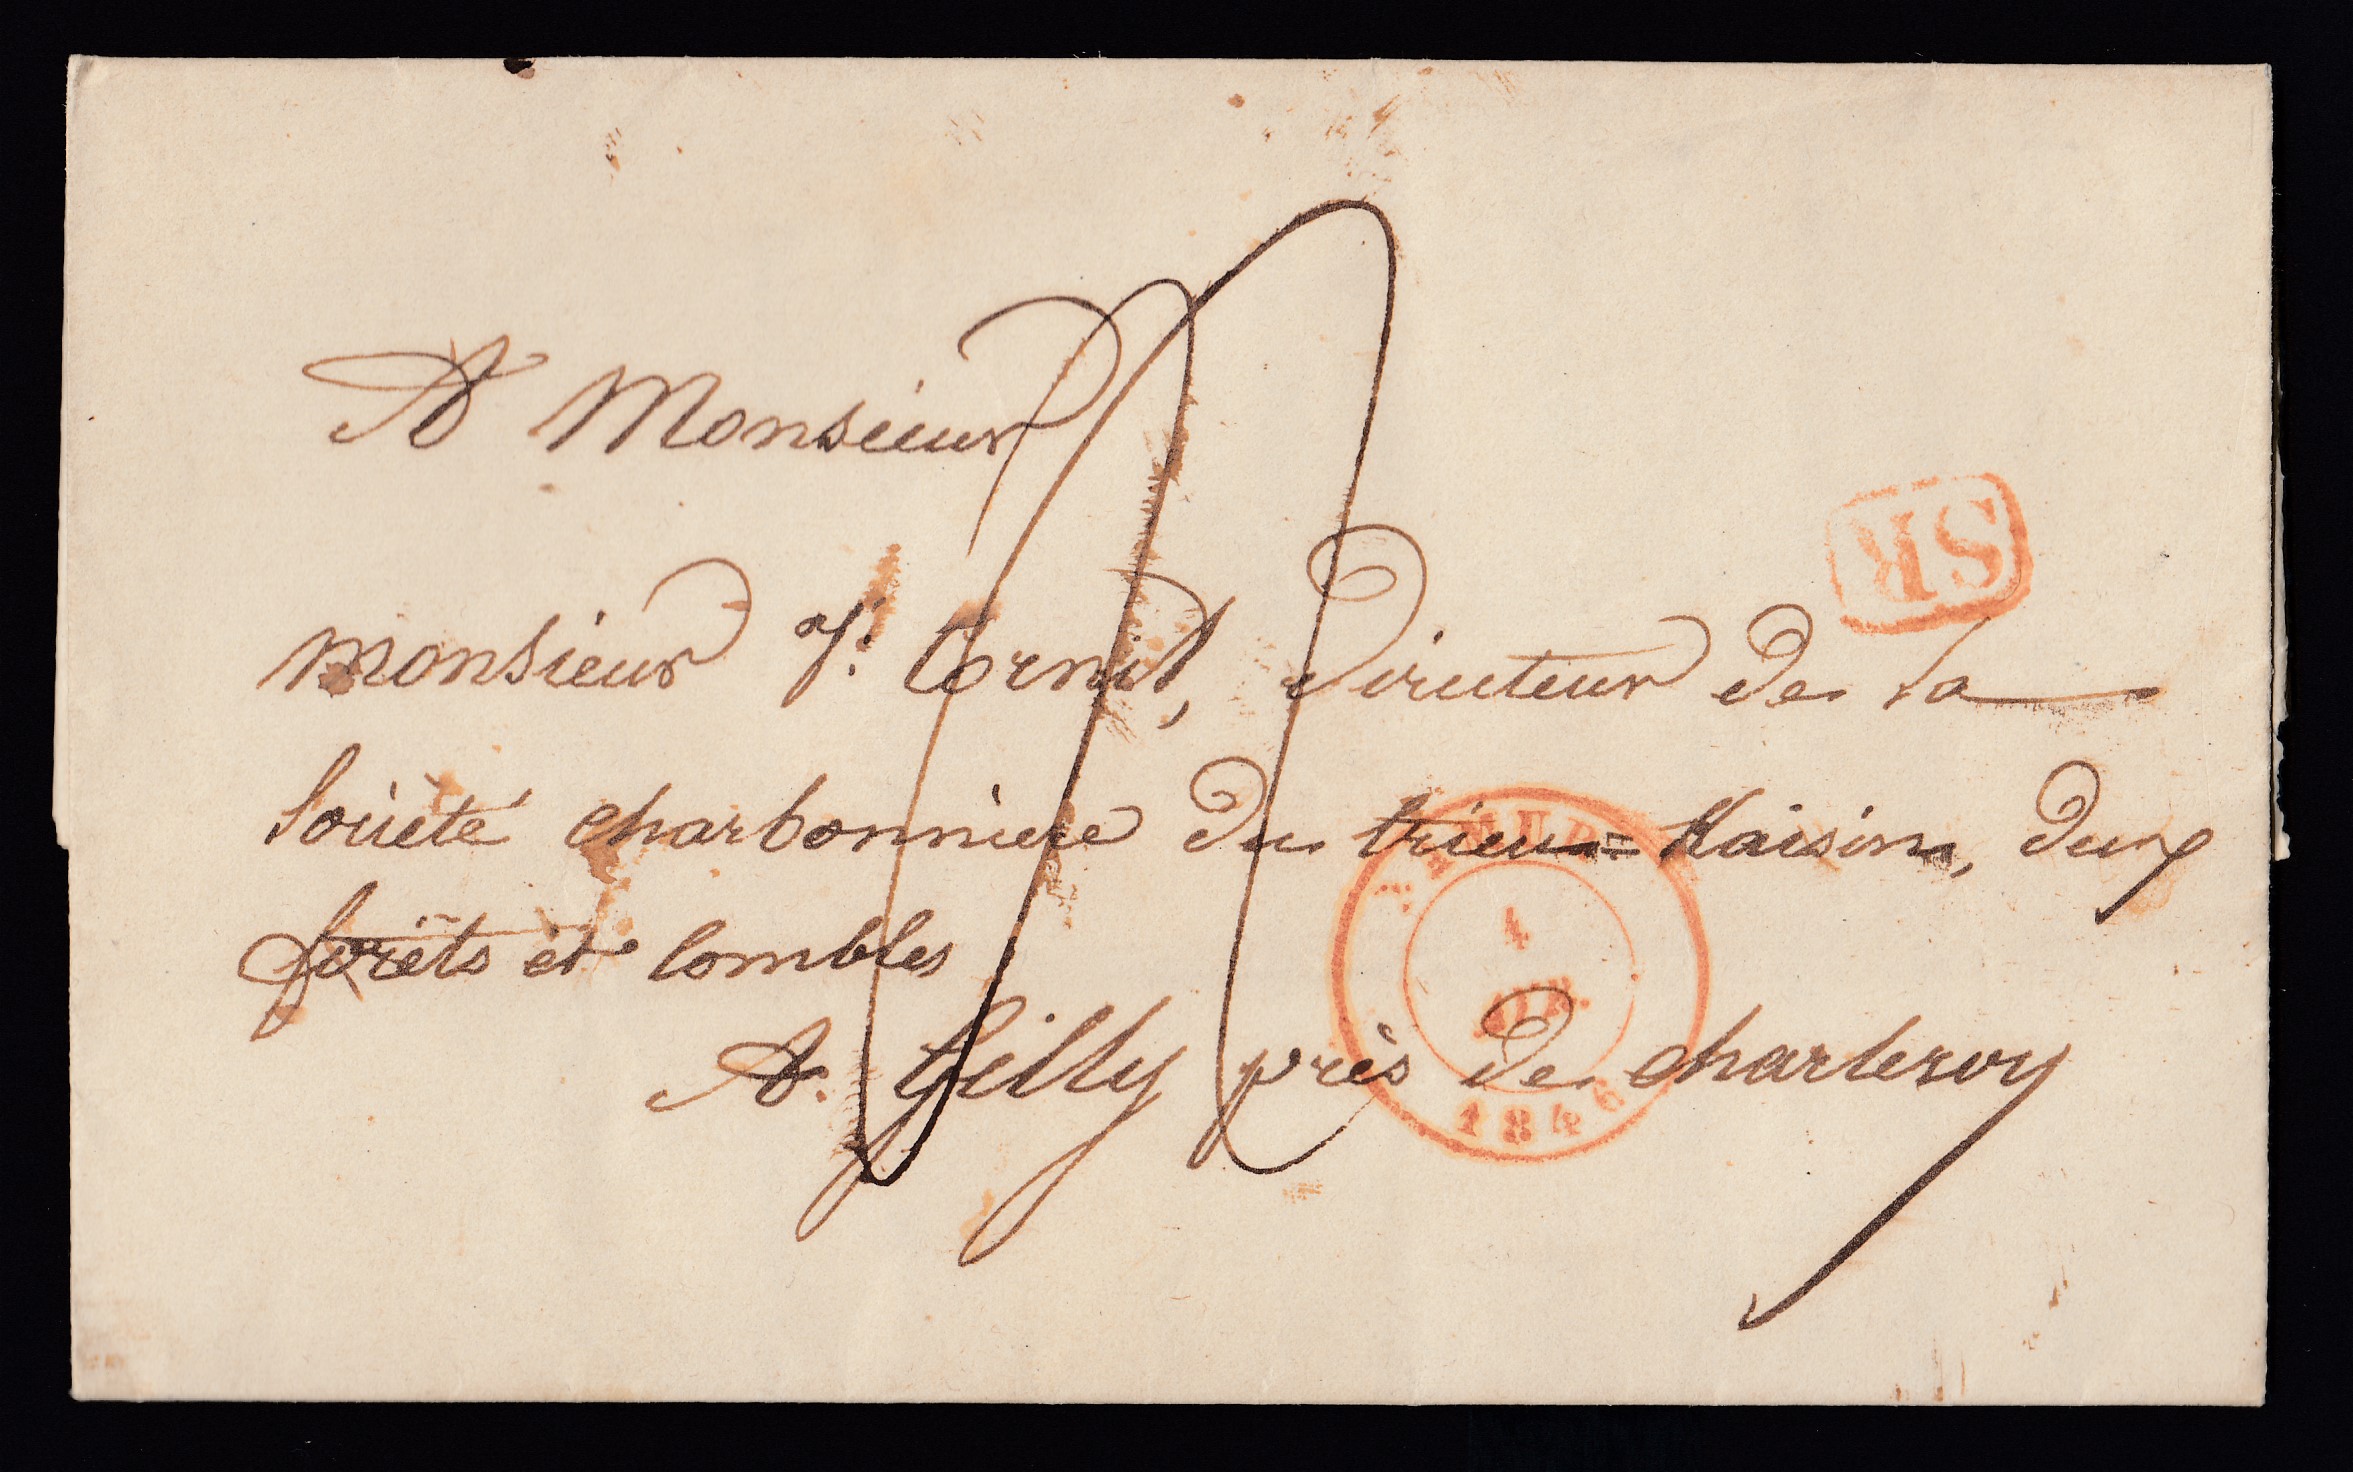 A Monsieur
SR
monsieur f: Cornil, Directeur de la
Société charbonnière du trieu=Kaisin, duf
forêts et Combles
4
AVR.
A. Gilly près de charleroy
1846